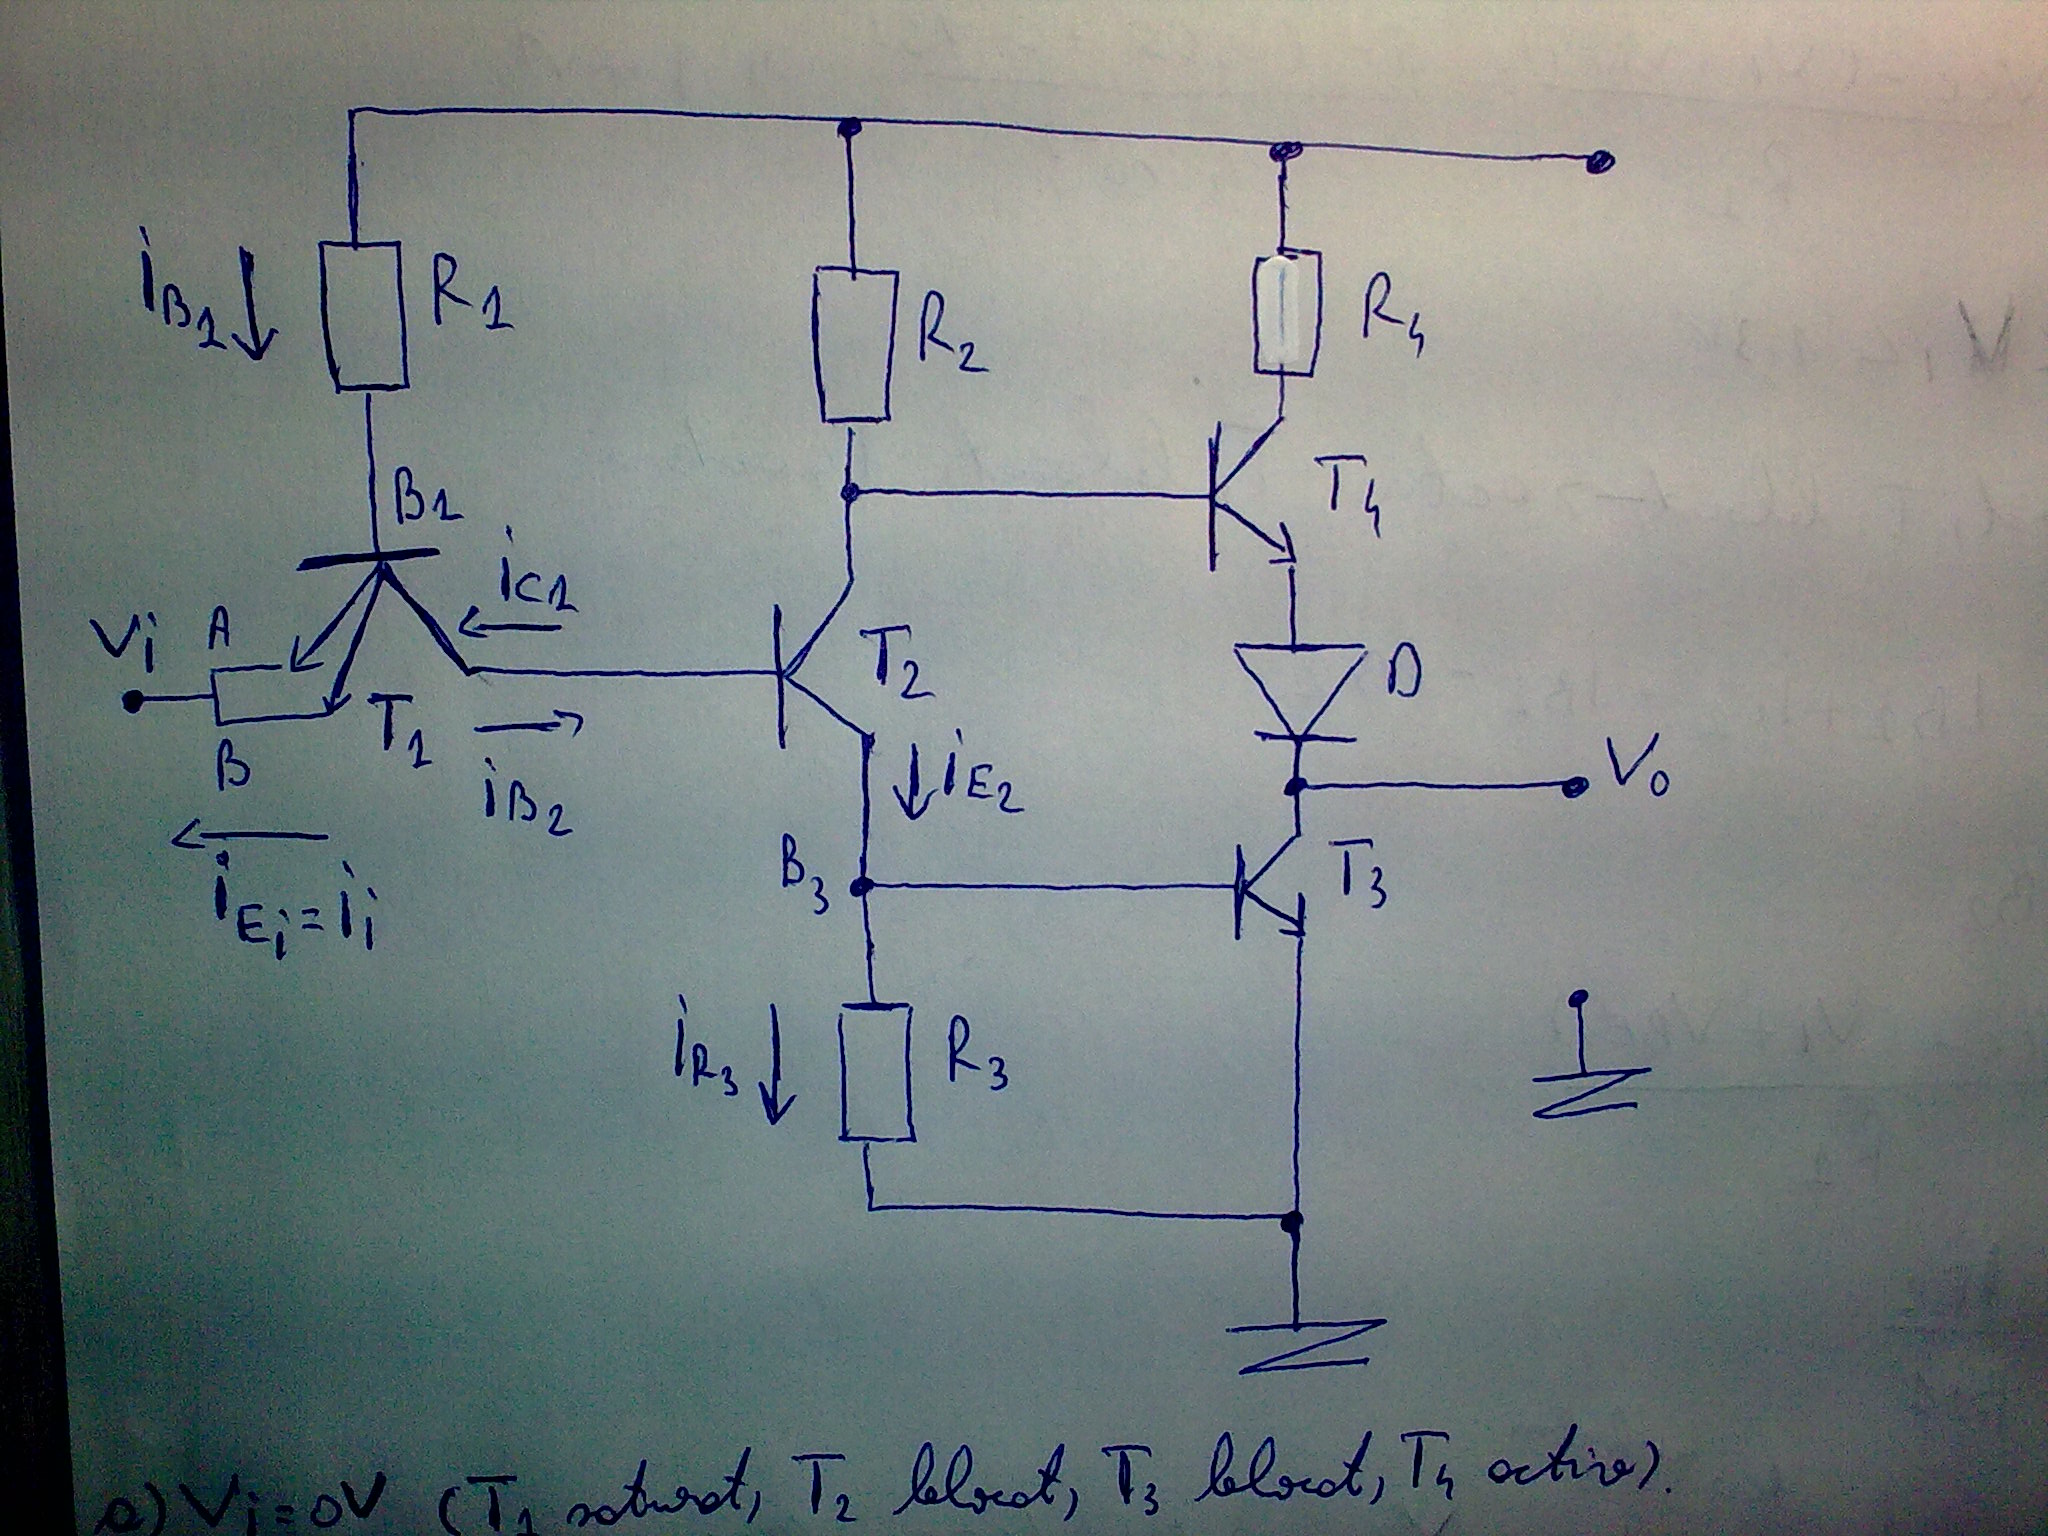 iB1
R1
R2
R4
B1
T4
iC1
Vi
A
T1
B
iB2
T2
D
iE2
V0
iEi=ii
B3
T3
iR3
R3
a) Vi=0V (T1 saturat, T2 blocat, T3 blocat, T4 activ).